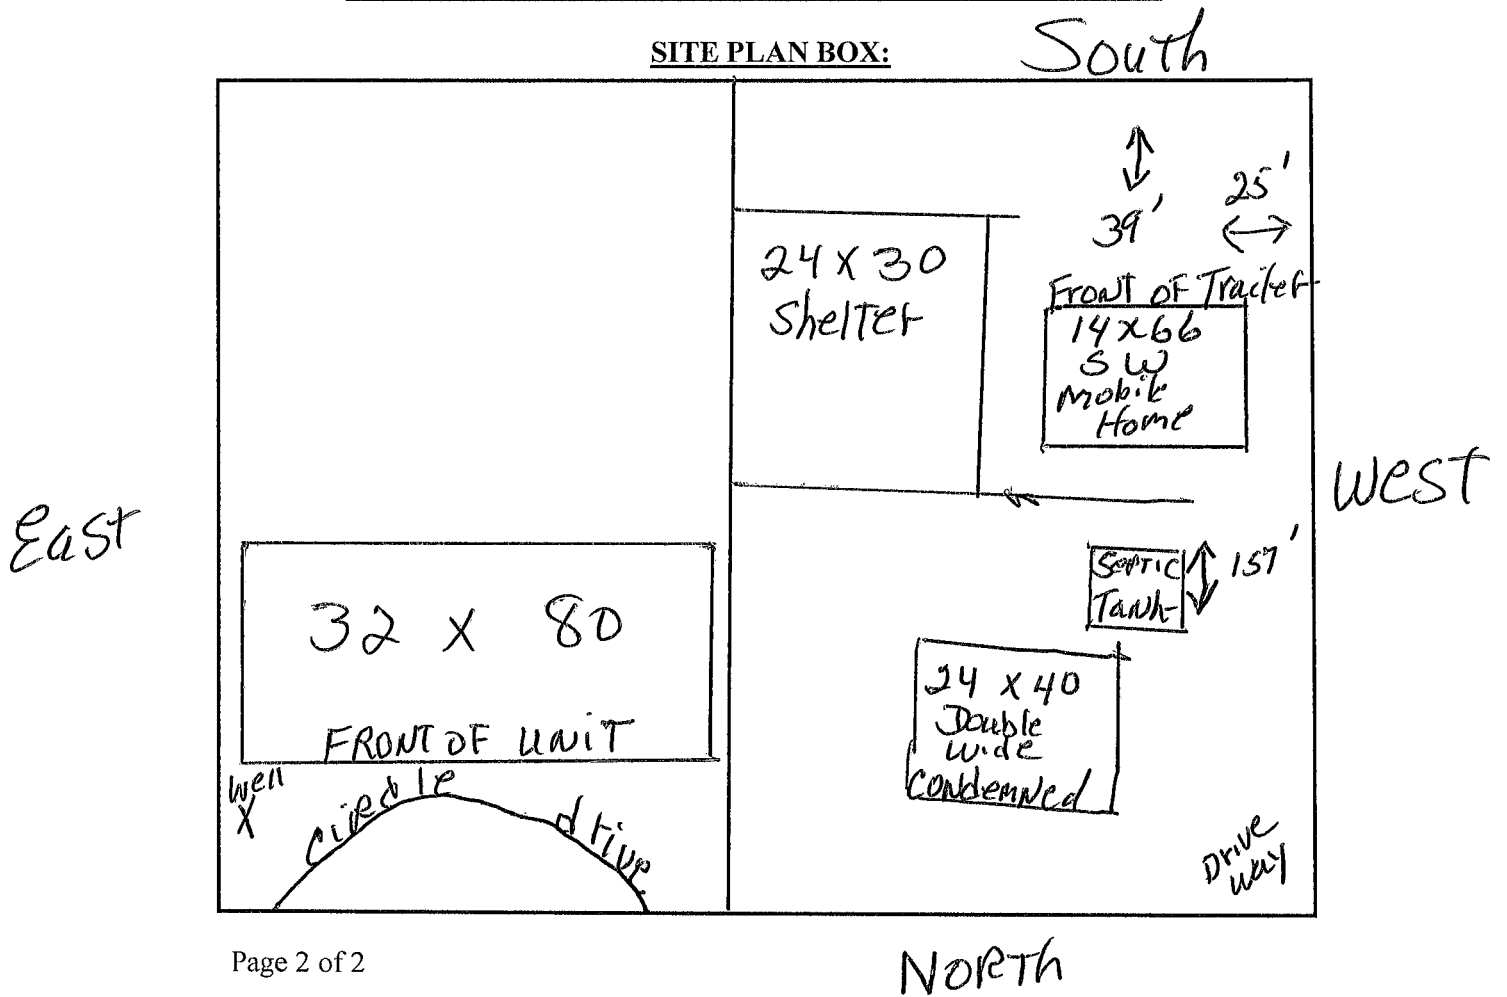 SITE PLAN BOX:
South
39'
25'
24 X 30
Shelter
Front of Trailer
14 X 66
SW
Mobile
Home
East
West
Septic
Tank
157'
32 X 80
FRONT OF UNIT
24 X 40
Double
Wide
Condemned
Well
X
Circle drive
Drive
Way
Page 2 of 2
NORTH